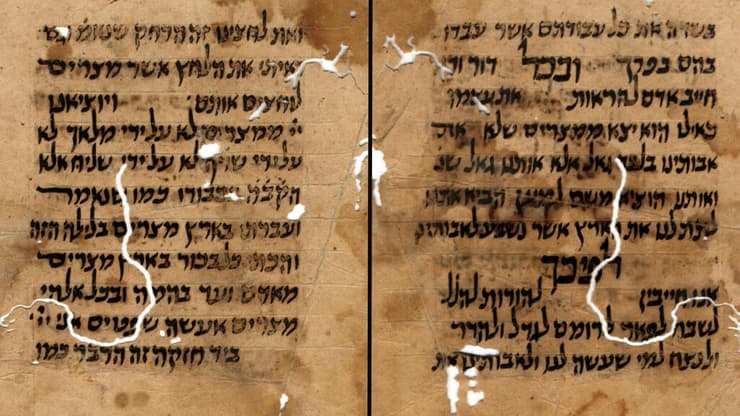 בשדה את כל עבודתם אשר עבדו
בהם בפרך ובכל דור
חייב אדם להראות את עצמו
כאילו הוא יצא ממצרים שלא את
אבותינו בלבד גאל אלא אותנו גאל שנ
ואותנו הוציא משם למען הביא אתנו
לתת לנו את הארץ אשר נשבע לאבותינו
לפיכך
אנו חייבין להודות להלל
לשבח לפאר לרומם לגדל ולהדר
ולנצח למי שעשה לנו ולאבותינו את
ואת לחצינו זה הדחק שנאמר וגם
ראיתי את הלחץ אשר מצרים
לוחצים אותם: ויוציאנו
ייי ממצרים לא על ידי מלאך לא
על ידי שרף לא על ידי שליח אלא
הקבה בכבודו כמו שנאמר
ועברתי בארץ מצרים בלילה הזה
והכתי כל בכור בארץ מצרים
מאדם ועד בהמה ובכל אלהי
מצרים אעשה שפטים אני ייי
ביד חזקה זה הדבר כמו